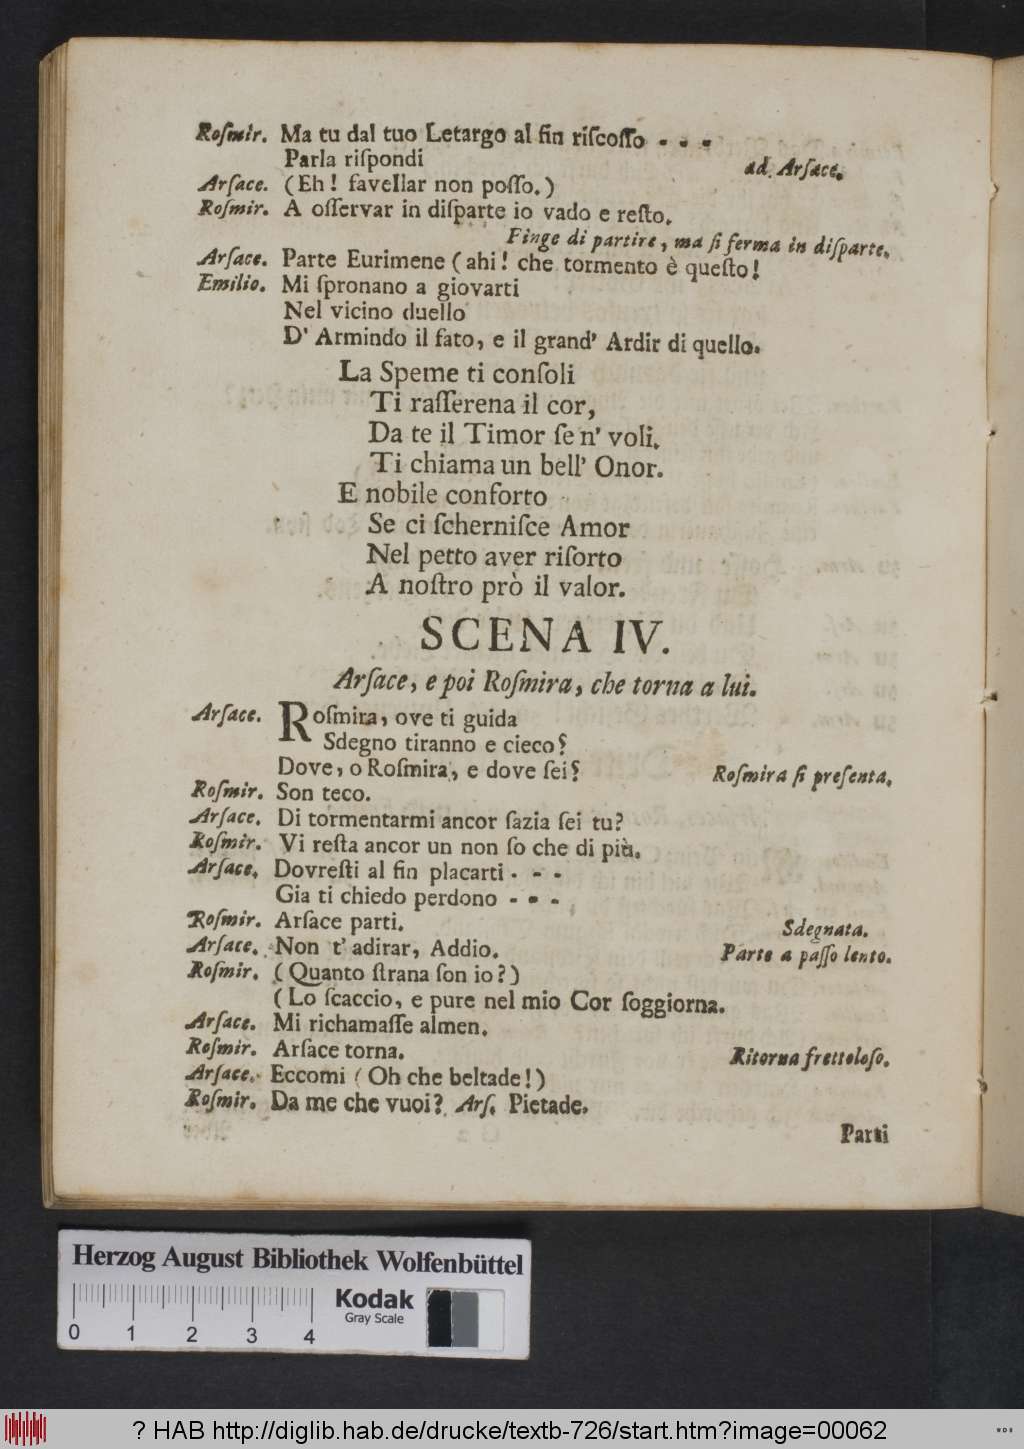 Roſmir. Ma tu dal tuo Letargo al fin riſcoſſo - - -
Parla riſpondi
ad Arſace.
Arſace. (Eh! favellar non poſſo.)
Roſmir. A oſſervar in diſparte io vado e reſto.
Finge di partire, ma ſi ferma in diſparte.
Arſace. Parte Eurimene (ahi! che tormento è queſto!
Emilio. Mi ſpronano a giovarti
Nel vicino duello
D' Armindo il fato, e il grand' Ardir di quello.
La Speme ti conſoli
Ti raſſerena il cor,
Da te il Timor ſe n' voli.
Ti chiama un bell' Onor.
E nobile conforto
Se ci ſcherniſce Amor
Nel petto aver riſorto
A noſtro prò il valor.
SCENA IV.
Arſace, e poi Roſmira, che torna a lui.
Arſace. Roſmira, ove ti guida
Sdegno tiranno e cieco?
Dove, o Roſmira, e dove ſei? Roſmira ſi preſenta.
Roſmir. Son teco.
Arſace. Di tormentarmi ancor ſazia ſei tu?
Roſmir. Vi reſta ancor un non ſo che di più.
Arſace. Dovreſti al fin placarti - - -
Gia ti chiedo perdono - - -
Roſmir. Arſace parti. Sdegnata.
Arſace. Non t' adirar, Addio. Parte a paſſo lento.
Roſmir. (Quanto ſtrana ſon io?)
(Lo ſcaccio, e pure nel mio Cor ſoggiorna.
Arſace. Mi richamaſſe almen.
Roſmir. Arſace torna. Ritorna frettoloſo.
Arſace. Eccomi (Oh che beltade!)
Roſmir. Da me che vuoi? Arſ. Pietade.
Parti
Herzog August Bibliothek Wolfenbüttel
Kodak
Gray Scale
0 1 2 3 4
? HAB http://diglib.hab.de/drucke/textb-726/start.htm?image=00062